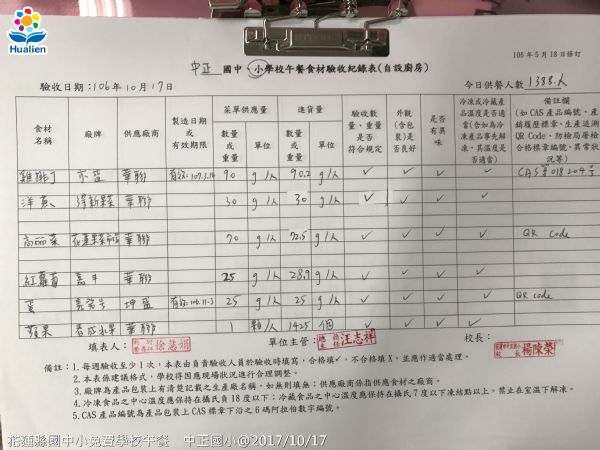 Hualien
106年5月18日修訂
中正 國中、小學校午餐食材驗收紀錄表(自設廚房)
驗收日期:106年10月17日
今日供餐人數 1388人
食材名稱 廠牌 供應廠商 製造日期或有效期限 菜單供應量 進貨量 驗收數量、重量是否符合規定 外觀(含包裝)是否良好 是否有異味 冷凍或冷藏產品溫度是否適當(含如為冷凍產品事先解凍,其溫度是否適當) 備註欄(如CAS產品編號、產銷履歷標章、生產追溯QR Code、防檢局屠檢合格標章編號、異常狀況等)
數量或重量 單位 數量或重量 單位
雞排丁 華聯 90 g/人 90.2 g/人 ✓ ✓ ✓ ✓ CAS 018204
洋蔥 華聯 30 g/人 30 g/人 ✓ ✓ ✓
高麗菜 華聯 70 g/人 72.5 g/人 ✓ ✓ ✓ QR code
紅蘿蔔 華聯 25 g/人 28.9 g/人 ✓ ✓ ✓
蛋 坤盛 25 g/人 25 g/人 ✓ ✓ ✓ QR code
蘋果 華聯 1 顆/人 1425 個 ✓ ✓ ✓
填表人: 單位主管: 汪志祥 校長: 楊陳榮
備註:1.每週驗收至少1次,本表由負責驗收人員於驗收時填寫,合格填✓,不合格填X,並應作適當處理。
2.本表係建議格式,學校得因應現場狀況進行合理調整。
3.廠牌為產品包裝上有清楚記載之生產廠名稱,如無則填無;供應廠商係指供應食材之廠商。
4.冷凍食品之中心溫度應保持在攝氏負18度以下;冷藏食品之中心溫度應保持在攝氏7度以下凍結點以上。禁止在室溫下解凍。
5.CAS產品編號為產品包裝上CAS標章下沿之6碼阿拉伯數字編號。
花蓮縣國中小免費學校午餐 中正國小@2017/10/17